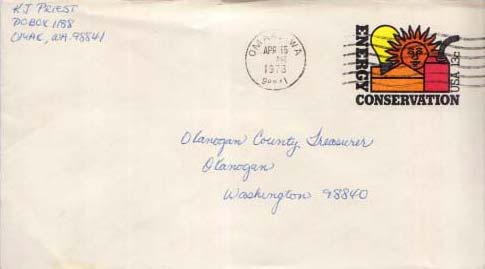 KJ PRIEST
PO BOX 1188
OMAK, WA. 98841
OMAK, WA
APR 15
PM
1978
98841
ENERGY
CONSERVATION
USA 13c
Okanogan County Treasurer
Okanogan
Washington 98840